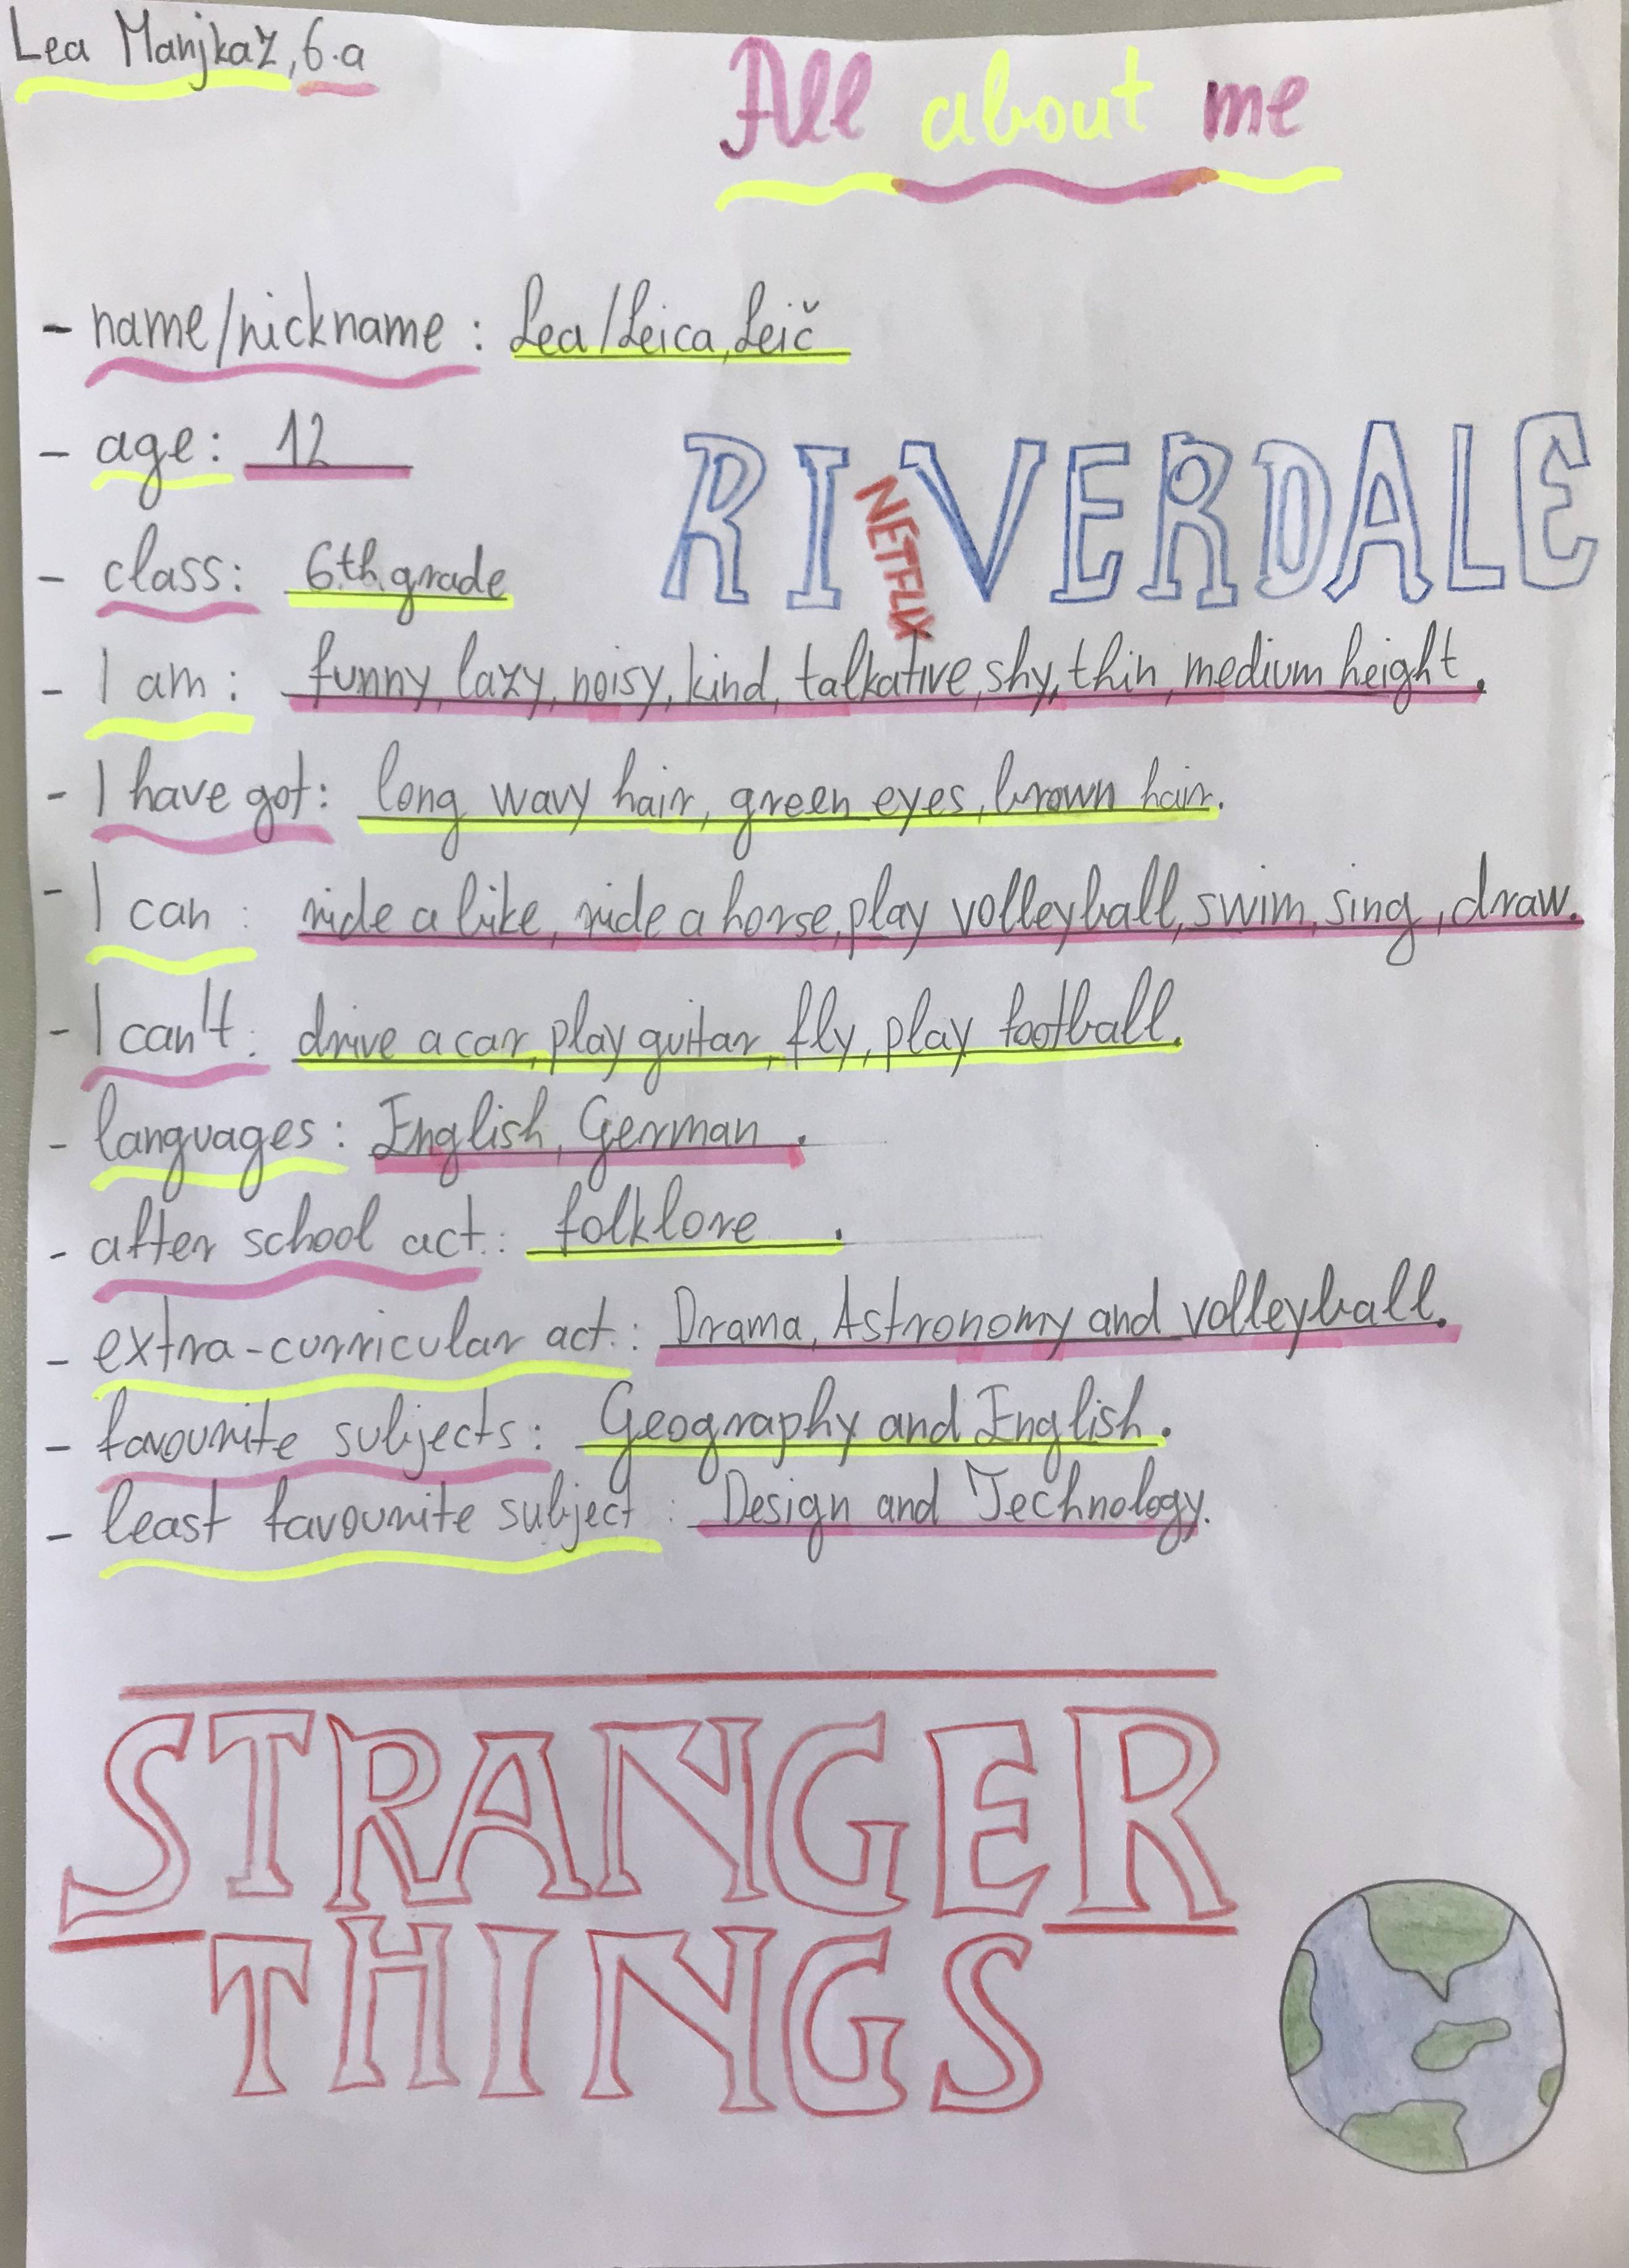 Lea Manjkaž, 6.a
All about me
- name/nickname: Lea/Leica, Leič
- age: 12
RIVERDALE
NETFLIX
- class: 6th grade
- I am: funny, lazy, noisy, kind, talkative, shy, thin, medium height.
- I have got: long wavy hair, green eyes, brown hair.
- I can: ride a bike, ride a horse, play volleyball, swim, sing, draw.
- I can't: drive a car, play guitar, fly, play football.
- languages: English, German.
- after school act.: folklore.
- extra-curricular act.: Drama, Astronomy and volleyball.
- favourite subjects: Geography and English.
- least favourite subject: Design and Technology.
STRANGER
THINGS